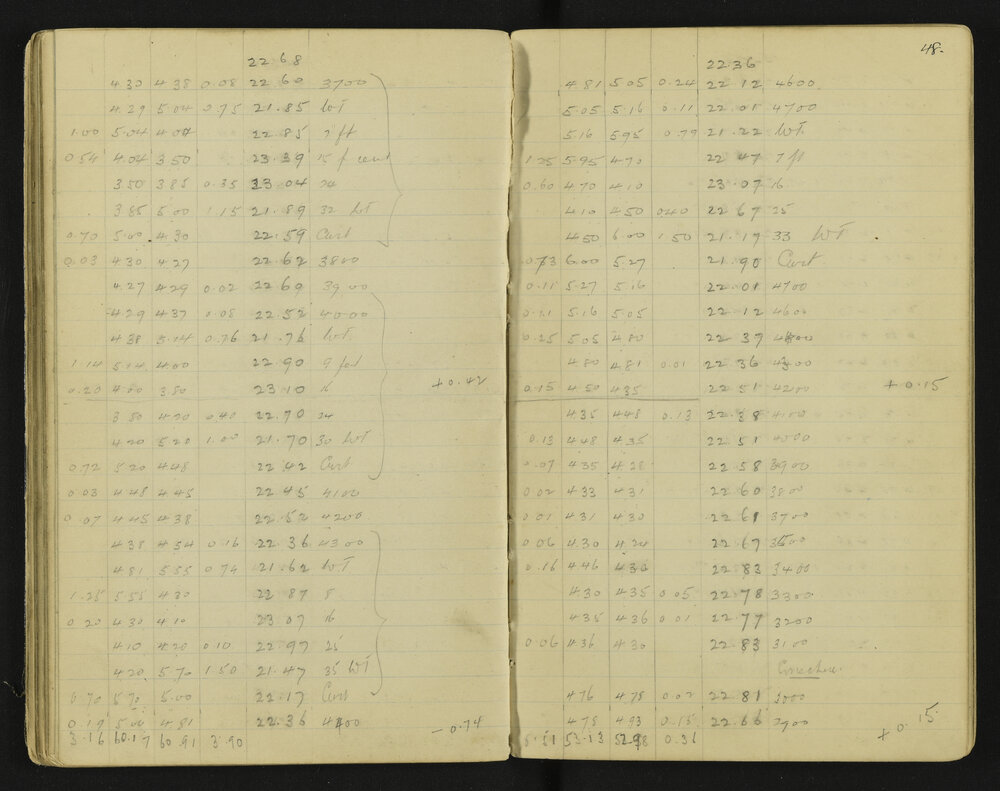 22.68
4.30 4.38 0.08 22.60 3700
4.29 5.04 0.75 21.85 WT
1.00 5.04 4.04 22.85 7 ft
0.54 4.04 3.50 23.39 15 f cent
3.50 3.85 0.35 23.04 24
3.85 5.00 1.15 21.89 32 WT
0.70 5.00 4.30 22.59 Cart
0.03 4.30 4.27 22.62 3800
4.27 4.29 0.02 22.60 3900
4.29 4.37 0.08 22.52 4000
4.38 5.14 0.76 21.76 WT
1.14 5.14 4.00 22.90 9 feet
0.20 4.00 3.80 23.10 16 +0.42
3.80 4.20 0.40 22.70 24
4.20 5.20 1.00 21.70 30 WT
0.72 5.20 4.48 22.42 Cart
0.03 4.48 4.45 22.45 4100
0.07 4.45 4.38 22.52 4200
4.38 4.54 0.16 22.36 4300
4.81 5.55 0.74 21.62 WT
1.25 5.55 4.30 22.87 8
0.20 4.30 4.10 23.07 16
4.10 4.20 0.10 22.97 25
4.20 5.70 1.50 21.47 35 WT
0.70 5.70 5.00 22.17 Cart
0.19 5.00 4.81 22.36 4400
3.16 60.17 60.91 3.90 -0.74
48.
22.36
4.81 5.05 0.24 22.12 4600
5.05 5.16 0.11 22.01 4700
5.16 5.95 0.79 21.22 WT
1.25 5.95 4.70 22.47 7 ft
0.60 4.70 4.10 23.07 16
4.10 4.50 0.40 22.67 25
4.50 6.00 1.50 21.17 33 WT
0.73 6.00 5.27 21.90 Cart
0.11 5.27 5.16 22.01 4700
0.11 5.16 5.05 22.12 4600
0.25 5.05 4.80 22.37 4400
4.80 4.81 0.01 22.36 4300
0.15 4.50 4.35 22.51 4200 +0.15
4.35 4.48 0.13 22.38 4100
0.13 4.48 4.35 22.51 4000
0.07 4.35 4.28 22.58 3900
0.02 4.33 4.31 22.60 3800
0.01 4.31 4.30 22.61 3700
0.06 4.30 4.24 22.67 3500
0.16 4.46 4.30 22.83 3400
4.30 4.35 0.05 22.78 3300
4.35 4.36 0.01 22.77 3200
0.06 4.36 4.30 22.83 3100
4.76 4.78 0.02 22.81 3000
4.78 4.93 0.15 22.66 2900
5.51 53.13 0.36 +0.15